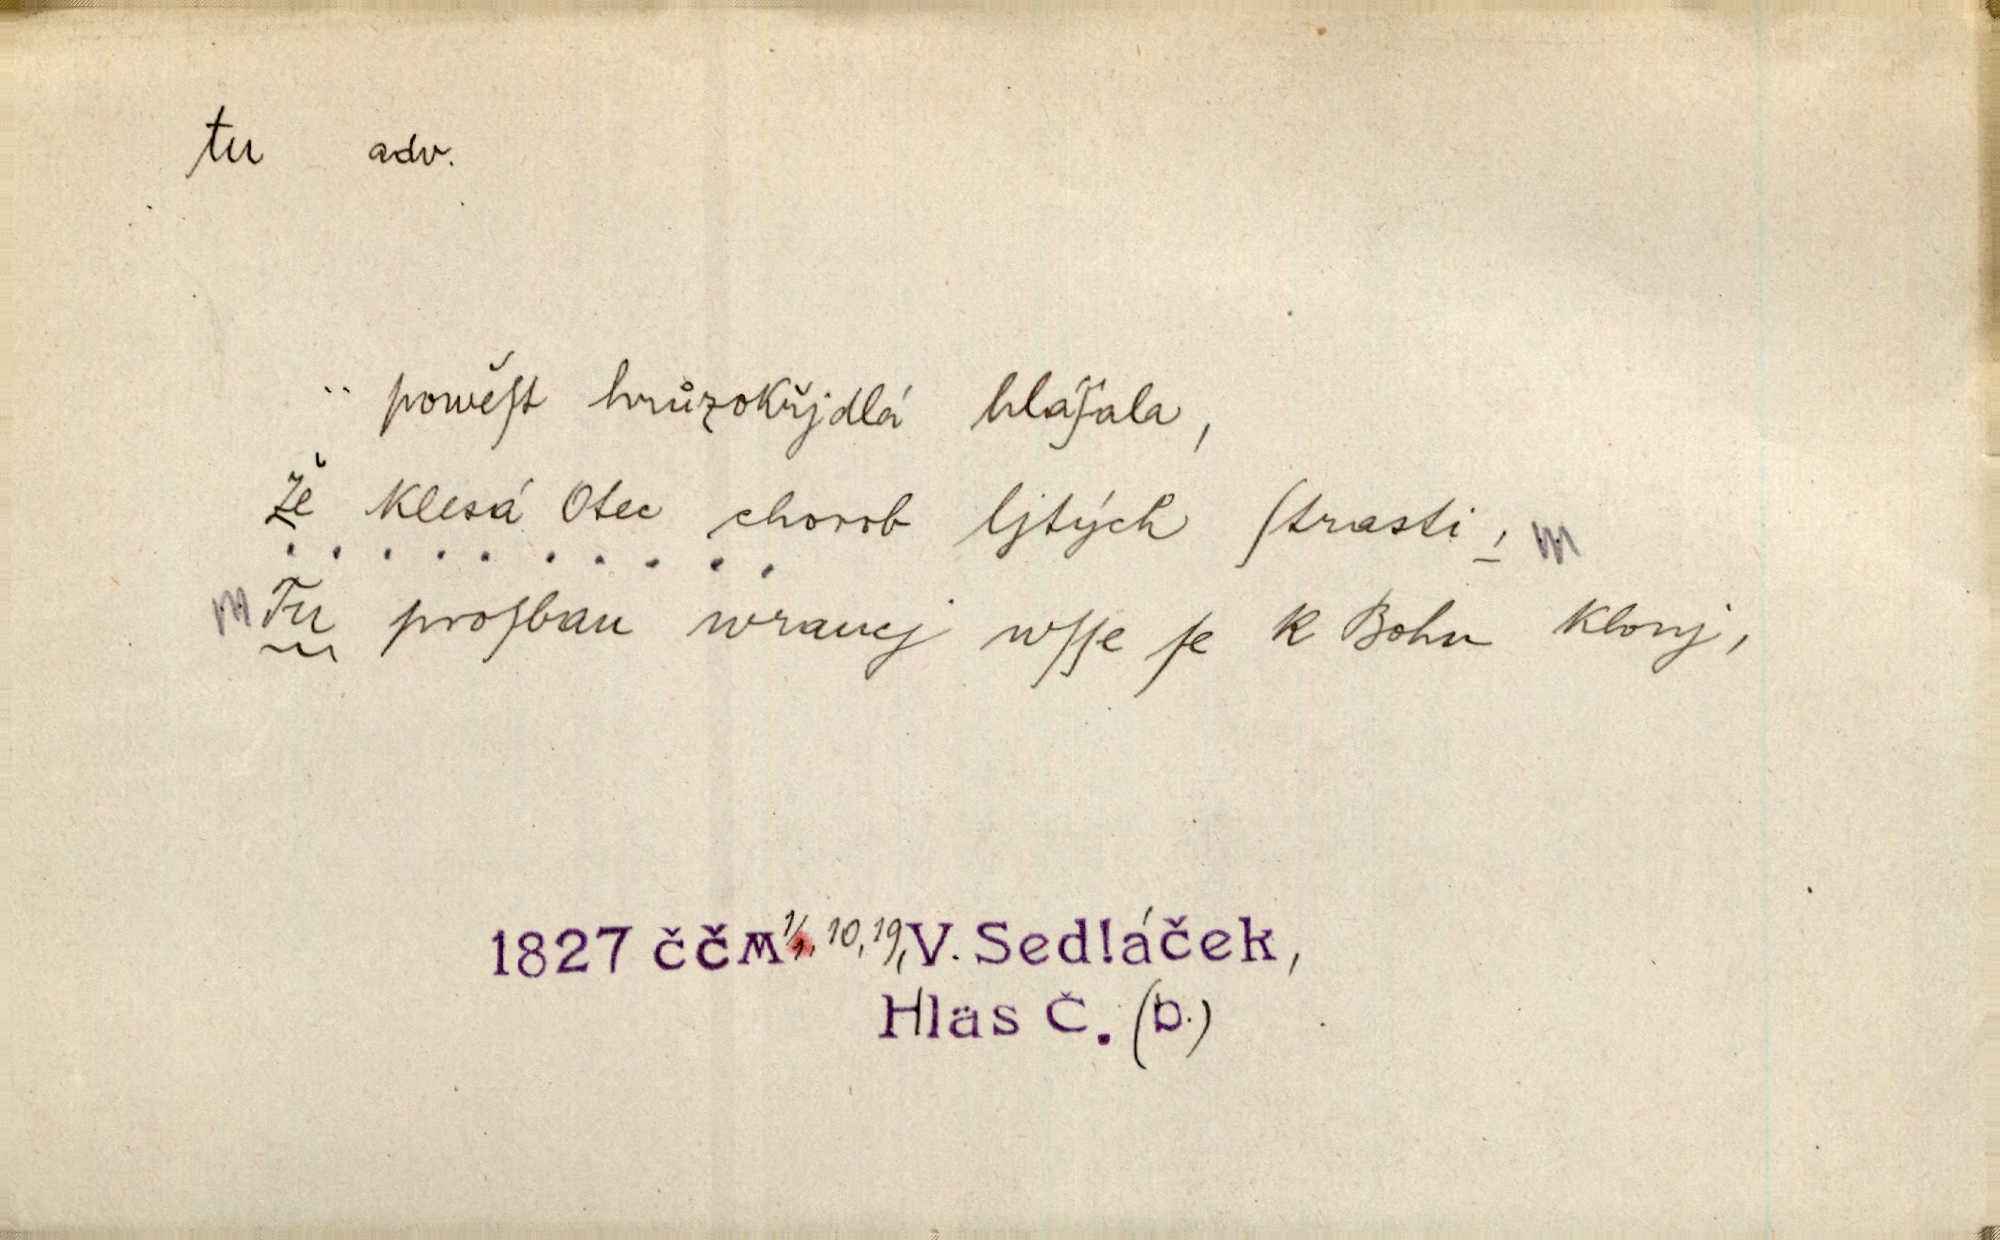 tu adv.
.. powěſt hrůzokřjdlá hláſala,
že klesá Otec chorob ljtých ſtrasti,
. . . . . . . . . . .
Tu proſbau wraucj wſſe ſe k Bohu klonj,
1827 ččM 1/1, 10, 19, V. Sedláček,
Hlas Č. (b.)